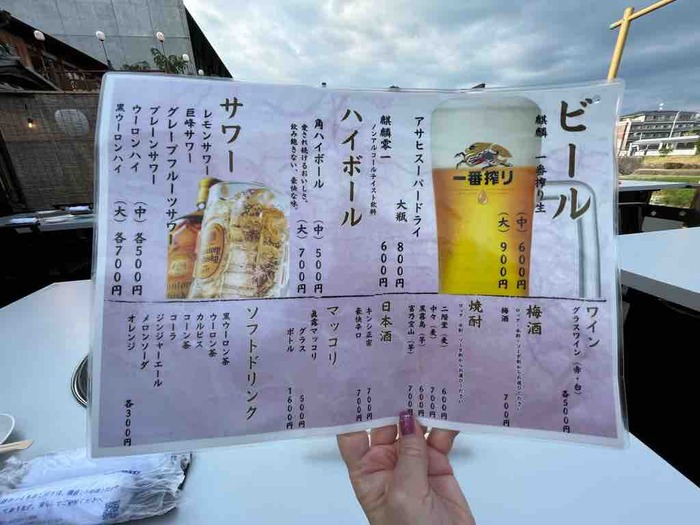 ビール
麒麟 一番搾り生
(中) 600円
(大) 900円
一番搾り
アサヒスーパードライ
大瓶 800円
麒麟零一
ノンアルコールテイスト飲料
600円
ハイボール
角ハイボール
(中) 500円
(大) 700円
愛され続けるおいしさ、
飲み飽きない、豪快な味。
サワー
レモンサワー
巨峰サワー
グレープフルーツサワー
プレーンサワー
ウーロンハイ
黒ウーロンハイ
(中) 各500円
(大) 各700円
ワイン
グラスワイン (赤・白)
各500円
梅酒
梅酒 700円
焼酎
二階堂 (麦) 600円
中々 (麦) 700円
黒霧島 (芋) 600円
富乃宝山 (芋) 700円
日本酒
キンシ正宗 700円
豪快辛口 700円
マッコリ
眞露マッコリ
グラス 500円
ボトル 1600円
ソフトドリンク
黒ウーロン茶
ウーロン茶
カルピス
コーン茶
コーラ
ジンジャーエール
メロンソーダ
オレンジ
各300円